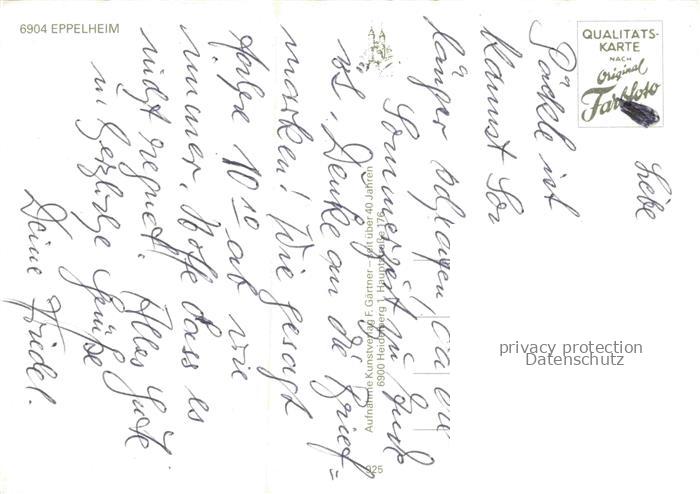 6904 EPPELHEIM
QUALITÄTS-
KARTE
NACH
Original
Farbfoto
Aufnahme Kunstverlag F. Gärtner – seit über 40 Jahren
6900 Heidelberg 1, Hauptstraße 176
925
privacy protection
Datenschutz
Liebe
Päckle ist
kannst So
länger schlafen, da die
Sommerzeit zu Ende
is. Denke an die Brief=
marken! Wie gesagt
Folge 10 10 ab wie
immer. Hoffe dass es
nicht regnet. Alles Gute
u herzliche Grüße
Deine Friedel.